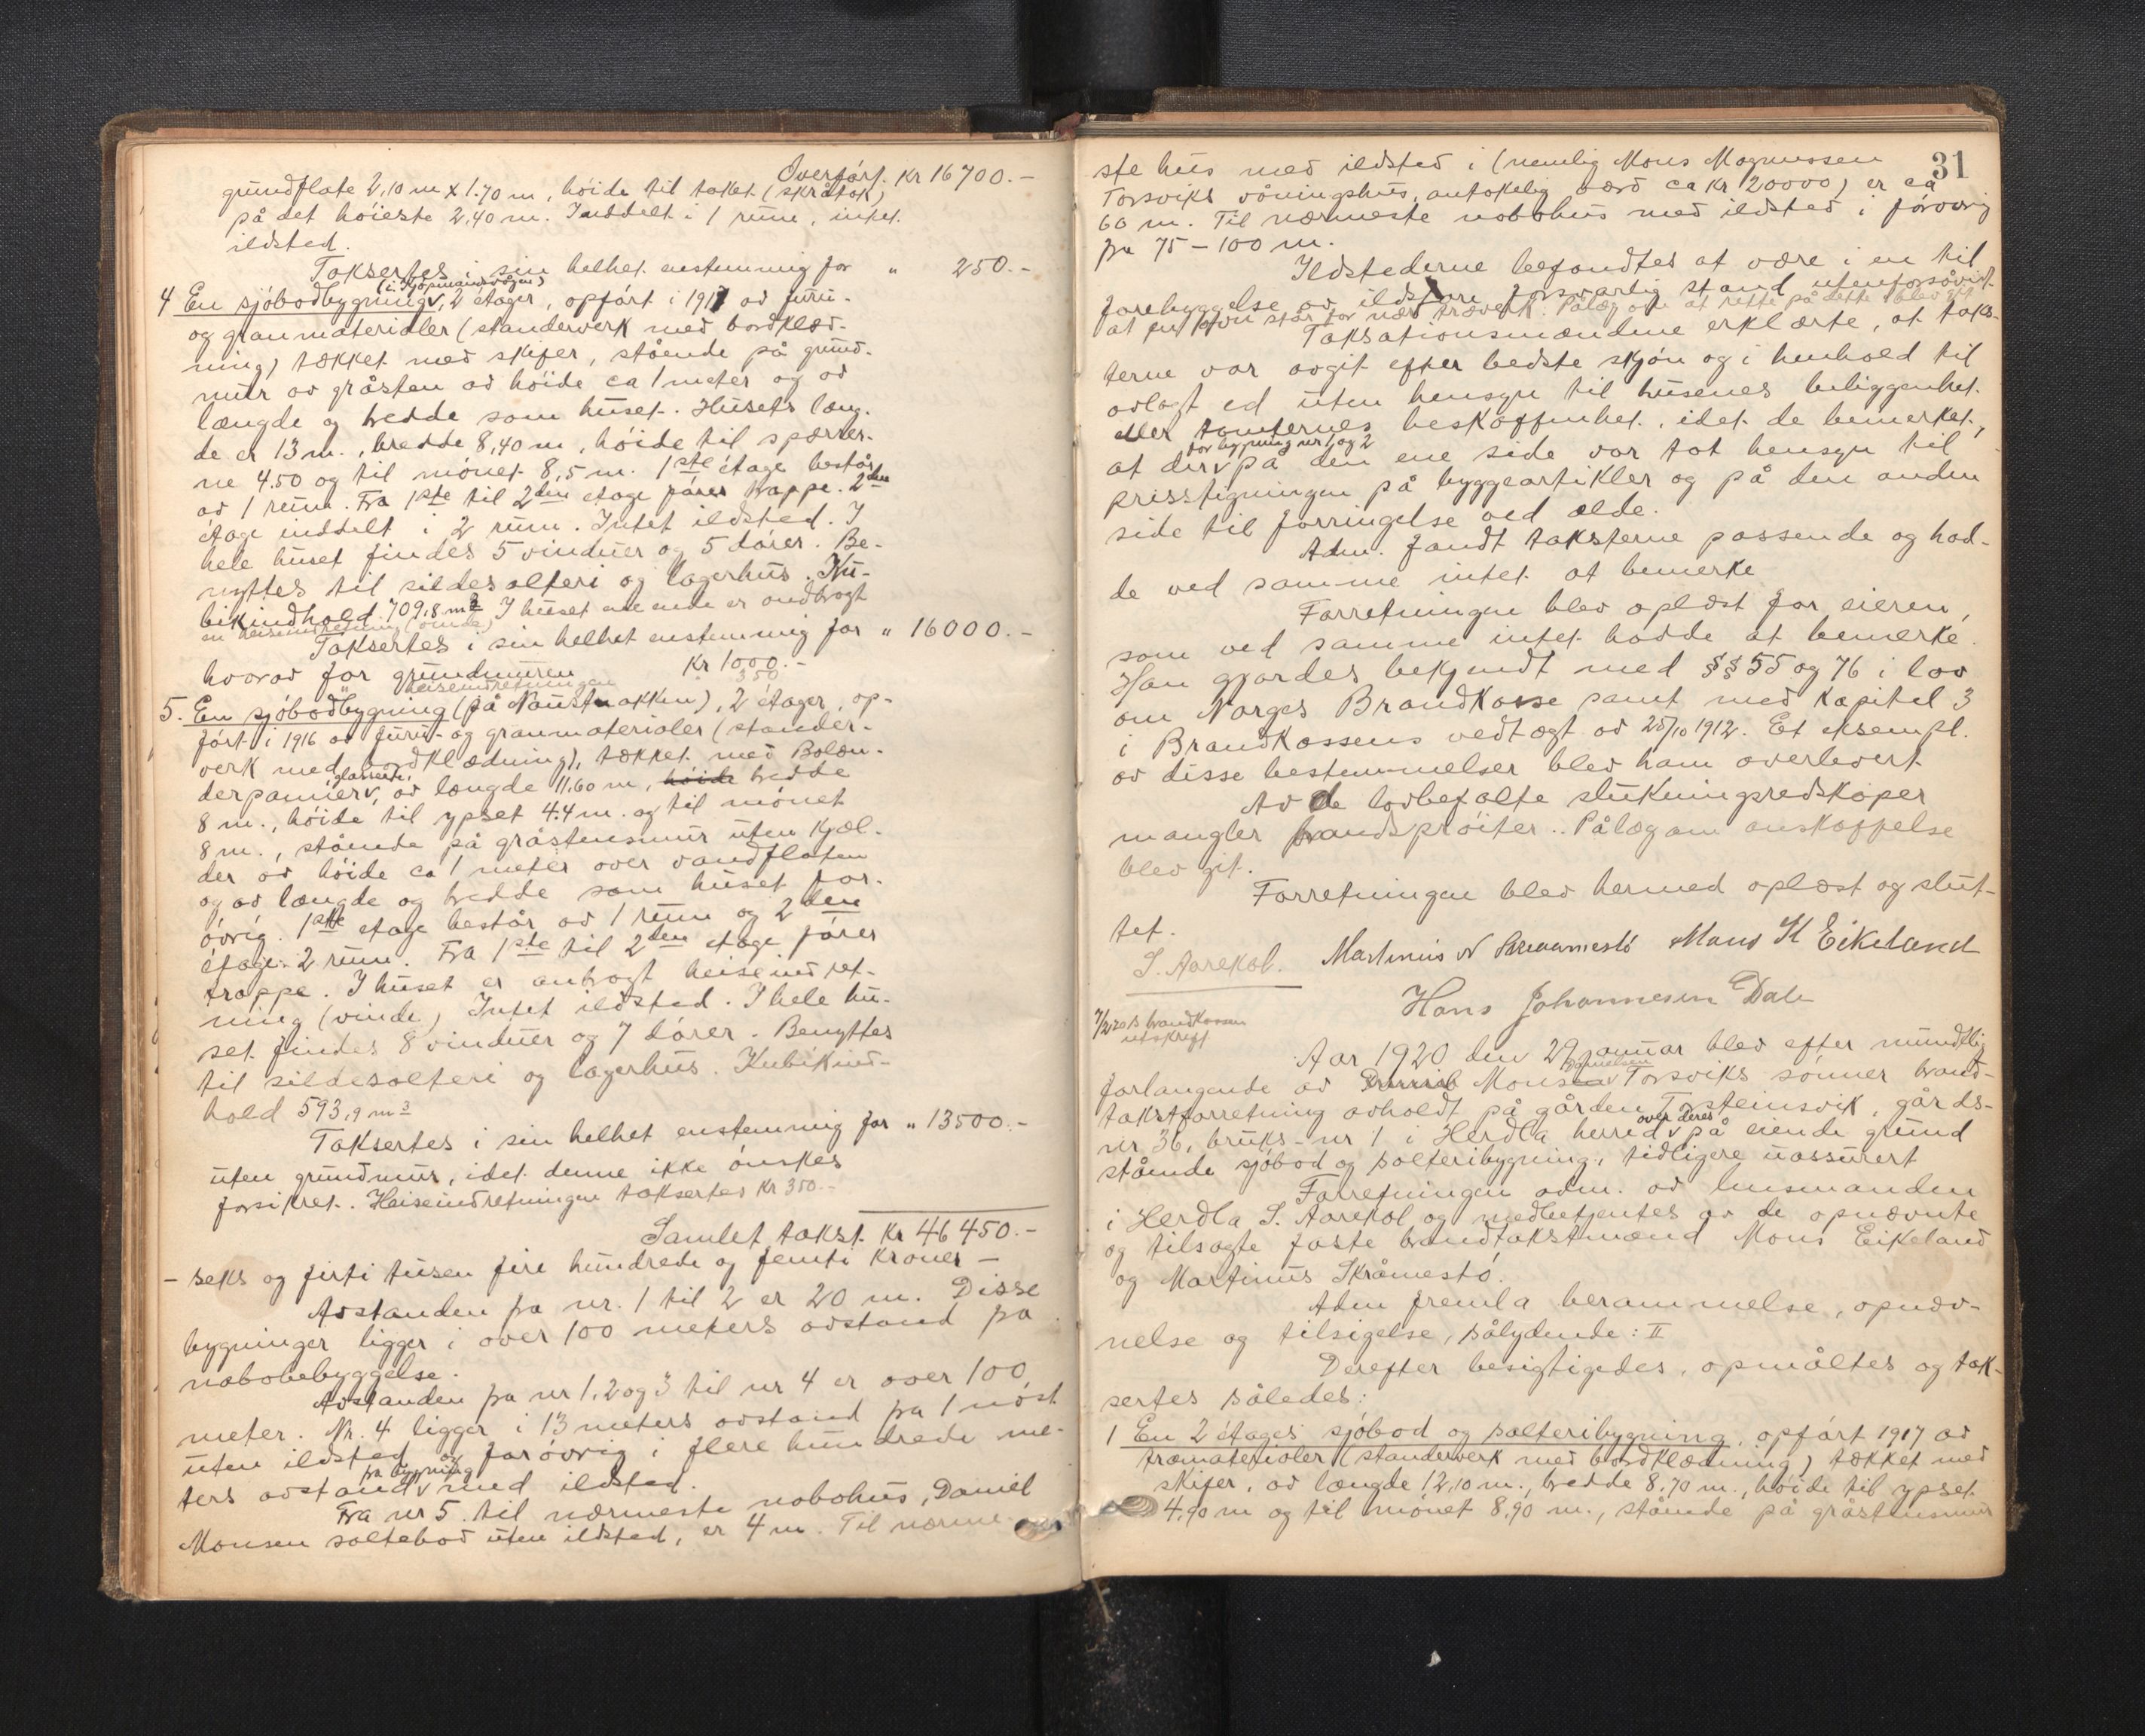 Overført. Kr 16700.-
grundflate 2,10 m x 1.70 m, höide til taket (skråtak)
på det höieste 2,40 m. Inddelt i 1 rum, intet
ildsted.
Taksertes i sin helhet enstemmig for " 250.-
(i Kjöpmansvågen)
4 En sjöbodbygning, 2 étager, opfört i 1917 av furu-
og granmaterialer (standerverk med bordklæd-
ning) tækket med skifer, stående på grund-
mur av gråsten av höide ca 1 meter og av
længde og bredde som huset. Husets læng-
de er 13 m., bredde 8,40 m, höide til spærrer-
ne 4.50 og til mönet 8,5 m. 1ste étage består
av 1 rum. Fra 1ste til 2den etage förer trappe. 2den
étage inddelt i 2 rum. Intet ildsted. I
hele huset findes 5 vinduer og 5 dörer. Be-
nyttes til sildesalteri og lagerhus. Ku-
bikindhold 709,8 m3 I huset ene ende er andbragt
en heiseindretning (vinde)
Taksertes i sin helhet enstemmig for " 16000.-
hvorav for grundmuren Kr 1000.-
" heiseindretningen 350
5. En sjöbodbygning (på Naustnakken), 2 étager, op-
fört i 1916 av furu- og granmaterialer (stander-
verk med bordklædning), tækket med Bolæn-
glasserte
derpanner, av længde 11,60 m, höide bredde
8 m., höide til ypset 4.4 m. og til mönet
8 m., stående på gråstensmur uten kjæl-
der av höide ca 1 meter over vandflaten
og av længde og bredde som huset for-
övrig. 1ste etage består av 1 rum og 2den
étage 2 rum. Fra 1ste til 2den etage förer
trappe. I huset er anbragt heiseindret-
ning (vinde) Intet ildsted. I hele hu-
set findes 8 vinduer og 7 dörer. Benyttes
til sildesalteri og lagerhus. Kubikind-
hold 593,9 m3
Taksertes i sin helhet enstemmig for " 13500.-
uten grundmur, idet denne ikke önskes
forsikret. Heiseindretningen taksertes Kr 350.-
Samlet takst Kr 46450.-
- seks og firti tusen fire hundrede og femti kroner -
Avstanden fra nr. 1 til 2 er 20 m. Disse
bygninger ligger i over 100 meters avstand fra
nabobebyggelse.
Avstanden fra nr 1, 2 og 3 til nr 4 er over 100
meter. Nr. 4 ligger i 13 meters avstand fra 1 nöst
uten ildsted og forövrig i flere hundrede me-
fra bygning
ters avstand med ildsted.
Fra nr 5. til nærmeste nabohus, Daniel
Monsen saltebod uten ildsted, er 4 m. Til nærme-
31
ste hus med ildsted i (nemlig Mons Magnussen
Torsviks våningshus, antakelig værd ca kr 20000) er ca
60 m. Til nærmeste nabohus med ildsted i forövrig
fra 75 - 100 m.
Ildstederne befandtes at være i en til
forebyggelse av ildsfare forsvarlig stand utenforsåvidt
at en står for nær træverk. Pålæg om at rette på dette blev git
Taksationsmændene erklærte, at taks-
terne var avgit efter bedste skjön og i henhold til
avlagt ed uten hensyn til husenes beliggenhet
eller tomternes beskaffenhet, idet de bemerket,
for bygning nr 1 og 2
at der på den ene side var tat hensyn til
prisstigningen på byggeartikler og på den anden
side til forringelse ved ælde.
Adm. fandt taksterne passende og had-
de ved samme intet at bemerke
Forretningen blev oplæst for eieren,
som ved samme intet hadde at bemerke.
Han gjordes bekjendt med §§ 55 og 76 i lov
om Norges Brandkasse samt med Kapitel 3
i Brandkassens vedtægt av 25/10 1912. Et eksempl.
av disse bestemmelser blev ham overlevert
Av de lovbefalte slukningsredskaper
mangler brandspröiter. Pålæg om anskaffelse
blev git.
Forretningen blev hermed oplæst og slut-
tet.
S. Aarekol. Martinus N Skraamestö Mons H Eikeland
Hans Johannesen Dale
7/2 20 brandkassen
utskrift
Aar 1920 den 29 januar blev efter mundtlig
forlangende av Mons Torsviks sönner brand-
takstforretning avholdt på gården Torsteinsvik, gårds-
over deres
nr 36, bruks-nr 1 i Herdla herred på eiende grund
stående sjöbod og salteribygning, tidligere uassurert
Forretningen adm. av lensmanden
i Herdla S. Aarekol og medbetjentes av de opnævnte
og tilsagte faste brandtakstmænd Mons Eikeland
og Martinus Skråmestö.
Adm fremla berammelse, opnæv-
nelse og tilsigelse, sålydende: II
Derefter besigtigedes, opmåltes og tak-
sertes således:
1 En 2 étages sjöbod og salteribygning, opfört 1917 av
træmaterialer (standerverk med bordklædning) tækket med
skifer, av længde 12,10 m., bredde 8,70 m., höide til ypset
4,90 m og til mönet 8,90 m., stående på gråstensmur